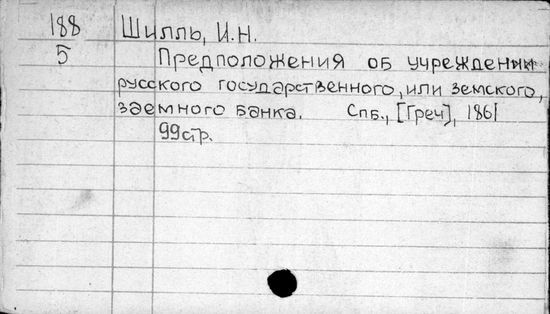 188 Шилль, И.Н.
5 Предположения об учреждении
русского государственного, или земского,
заемного банка. Спб., [Греч], 1861
99стр.